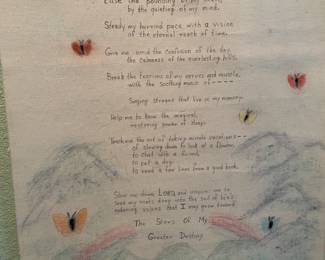 Ease the pounding of my heart
by the quieting of my mind.
Steady my hurried pace with a vision
of the eternal reach of time.
Give me amid the confusion of the day,
the calmness of the everlasting hills.
Break the tensions of my nerves and muscle,
with the soothing music of
Singing streams that live in my memory.
Help me to know the magical,
restoring power of sleep.
Teach me the art of taking minute vacations
of slowing down to look at a flower,
to chat with a friend,
to pat a dog,
to read a few lines from a good book.
Slow me down Lord and inspire me to
send my roots deep into the soil of life's
enduring values that I may grow toward
The Stars Of My
Greater Destiny